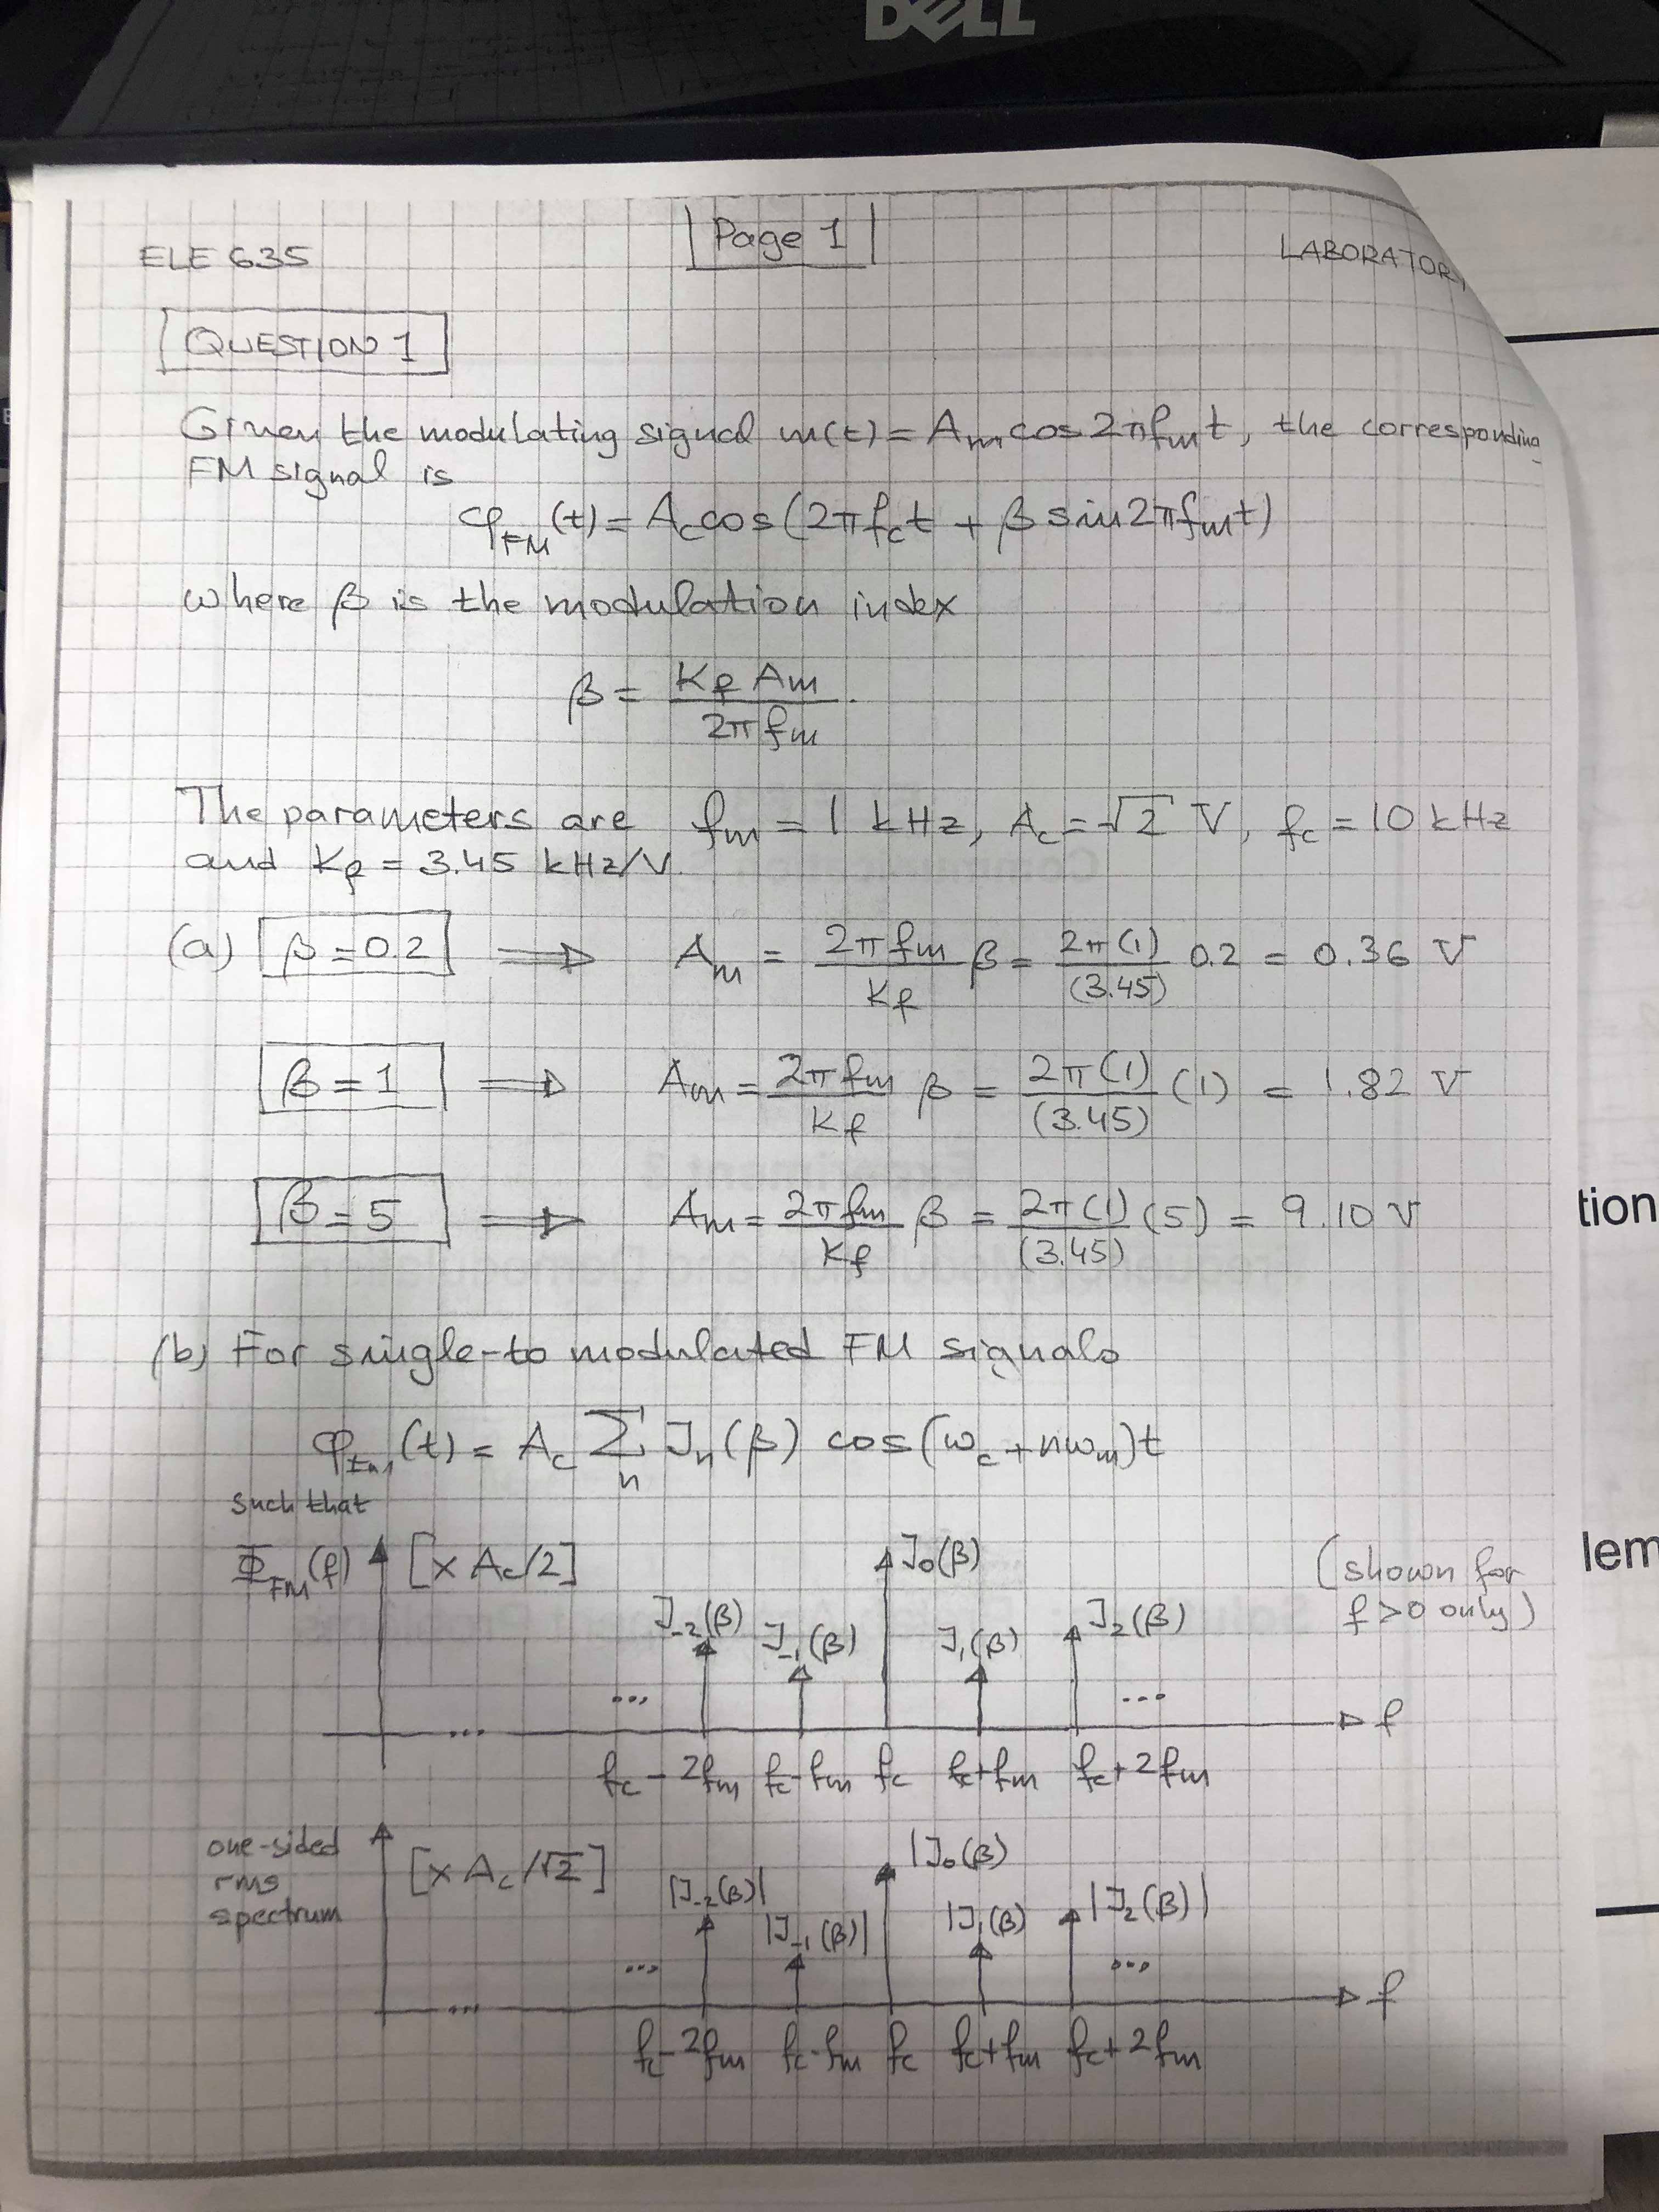 DELL
ELE 635
Page 1
LABORATORY
QUESTION 1
Given the modulating signal m(t) = Am cos 2πfmt, the corresponding
FM signal is
φFM(t) = Ac cos(2πfct + β sin 2πfmt)
where β is the modulation index
β = Kf Am / 2πfm .
The parameters are fm = 1 kHz, Ac = √2 V, fc = 10 kHz
and Kf = 3.45 kHz/V.
(a) β = 0.2 ⟹ Am = 2πfm/Kf β = 2π(1)/(3.45) 0.2 = 0.36 V
β = 1 ⟹ Am = 2πfm/Kf β = 2π(1)/(3.45) (1) = 1.82 V
β = 5 ⟹ Am = 2πfm/Kf β = 2π(1)/(3.45) (5) = 9.10 V
(b) For single-to modulated FM signals
φFM(t) = Ac Σn Jn(β) cos(ωc + nωm)t
such that
ΦFM(f) [× Ac/2] J0(β) (shown for
f > 0 only)
J-2(β) J-1(β) J1(β) J2(β)
... ... ... f
fc - 2fm fc - fm fc fc + fm fc + 2fm
one-sided
rms
spectrum
[× Ac/√2] |J0(β)
|J-2(β)| |J-1(β)| |J1(β) |J2(β)|
... ... ... f
fc - 2fm fc - fm fc fc + fm fc + 2fm
tion
lem